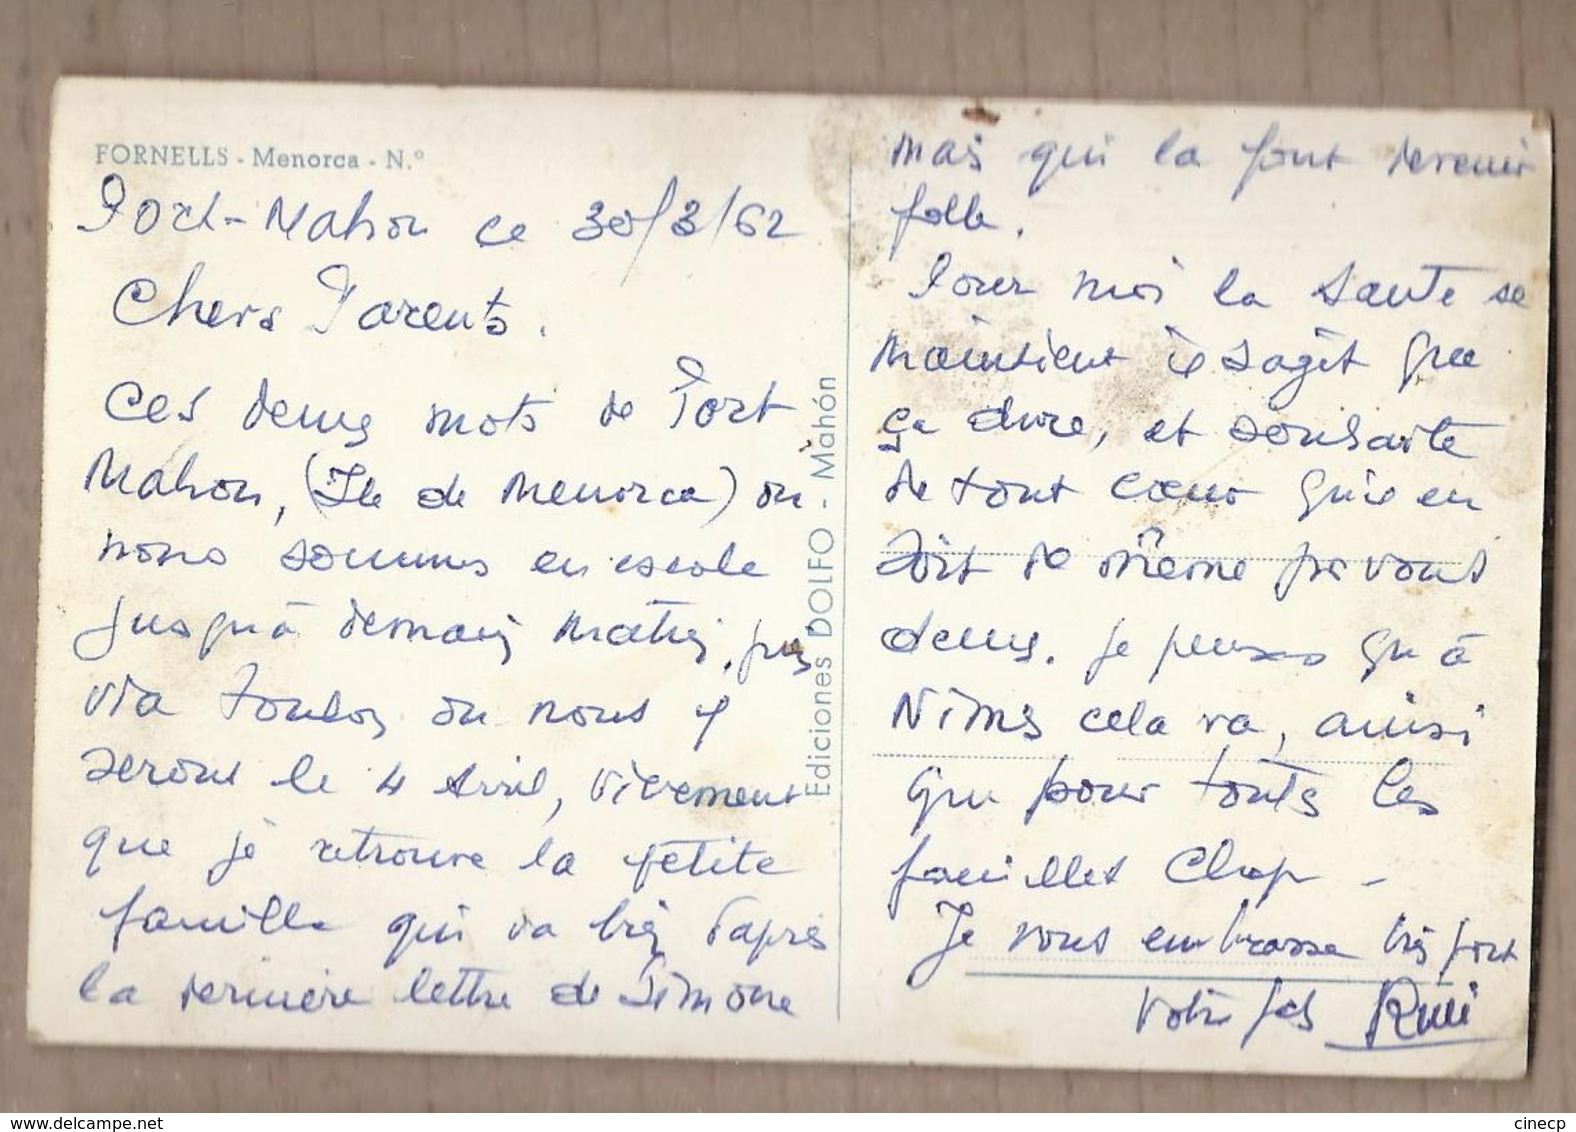 FORNELLS - Menorca - N.º
Port-Mahon ce 30/3/62
Chers Parents.
Ces deux mots de Port
Mahon, (Ile de Menorca) ou
nous sommes en escale
jusqu'à demain matin, puis
via Toulon ou nous y
serons le 4 Avril, vivement
que je retrouve la petite
famille qui va bien d'après
la dernière lettre de Simone
Ediciones DOLFO - Mahón
mais qui la font devenir
folle.
Pour moi la sante se
maintient il sagit que
ça dure, et souhaite
de tout cœur qu'il en
soit de même pr vous
deux. je penses qu'à
Nimes cela va, ainsi
que pour touts les
familles Chap -
Je vous embrasse très fort
Votre fils
www.delcampe.net
cinecp